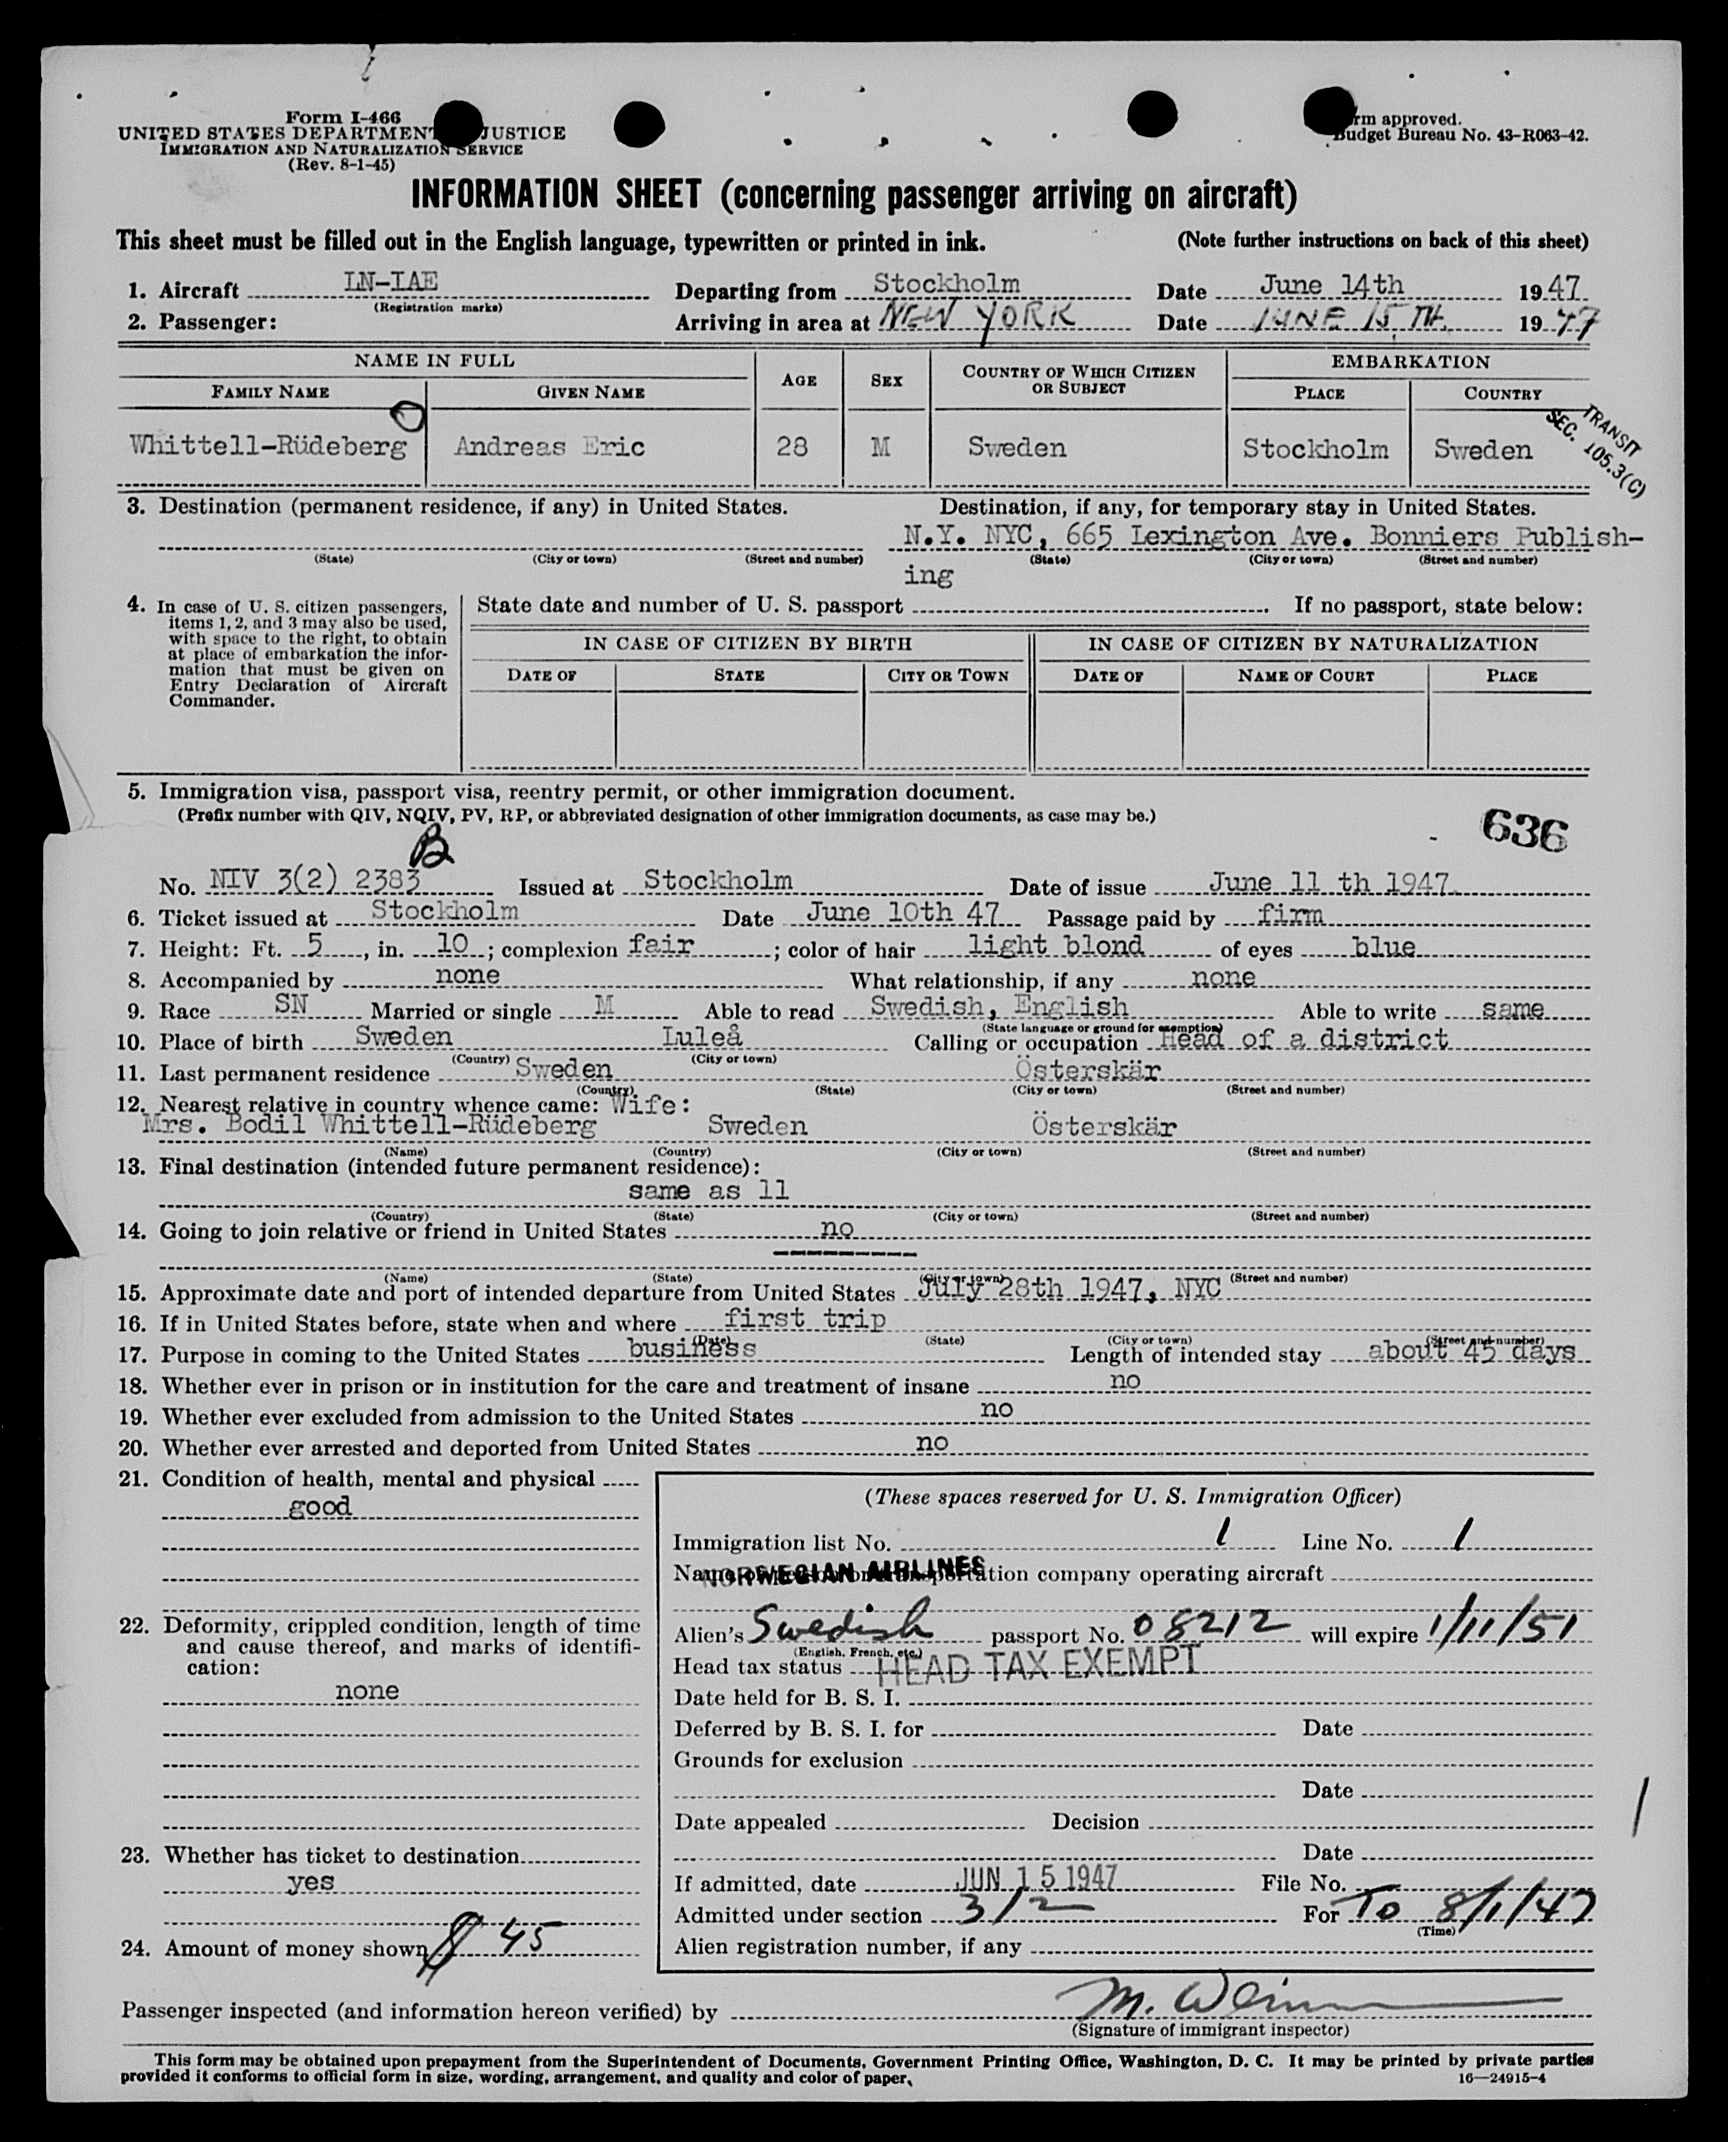 Form I-466
UNITED STATES DEPARTMENT JUSTICE
IMMIGRATION AND NATURALIZATION SERVICE
(Rev. 8-1-45)
rm approved.
Budget Bureau No. 43-R063-42.
INFORMATION SHEET (concerning passenger arriving on aircraft)
This sheet must be filled out in the English language, typewritten or printed in ink. (Note further instructions on back of this sheet)
1. Aircraft LN-IAE Departing from Stockholm Date June 14th 1947
(Registration marks)
2. Passenger: Arriving in area at NEW YORK Date JUNE 15 TH. 1947
NAME IN FULL AGE SEX COUNTRY OF WHICH CITIZEN OR SUBJECT EMBARKATION
FAMILY NAME GIVEN NAME PLACE COUNTRY
TRANSIT
SEC. 105.3(C)
Whittell-Rüdeberg Andreas Eric 28 M Sweden Stockholm Sweden
3. Destination (permanent residence, if any) in United States. Destination, if any, for temporary stay in United States.
N.Y. NYC, 665 Lexington Ave. Bonniers Publish-
(State) (City or town) (Street and number) (State) (City or town) (Street and number)
ing
4. In case of U. S. citizen passengers, items 1, 2, and 3 may also be used, with space to the right, to obtain at place of embarkation the information that must be given on Entry Declaration of Aircraft Commander.
State date and number of U. S. passport . If no passport, state below:
IN CASE OF CITIZEN BY BIRTH IN CASE OF CITIZEN BY NATURALIZATION
DATE OF STATE CITY OR TOWN DATE OF NAME OF COURT PLACE
5. Immigration visa, passport visa, reentry permit, or other immigration document.
(Prefix number with QIV, NQIV, PV, RP, or abbreviated designation of other immigration documents, as case may be.)
636
B
No. NIV 3(2) 2383 Issued at Stockholm Date of issue June 11 th 1947
6. Ticket issued at Stockholm Date June 10th 47 Passage paid by firm
7. Height: Ft. 5, in. 10; complexion fair; color of hair light blond of eyes blue
8. Accompanied by none What relationship, if any none
9. Race SN Married or single M Able to read Swedish, English Able to write same
(State language or ground for exemption)
10. Place of birth Sweden Luleå Calling or occupation Head of a district
(Country) (City or town)
11. Last permanent residence Sweden Österskär
(Country) (State) (City or town) (Street and number)
12. Nearest relative in country whence came: Wife:
Mrs. Bodil Whittell-Rüdeberg Sweden Österskär
(Name) (Country) (City or town) (Street and number)
13. Final destination (intended future permanent residence):
same as 11
(Country) (State) (City or town) (Street and number)
14. Going to join relative or friend in United States no
(Name) (State) (City or town) (Street and number)
15. Approximate date and port of intended departure from United States July 28th 1947, NYC
16. If in United States before, state when and where first trip
(Date) (State) (City or town) (Street and number)
17. Purpose in coming to the United States business Length of intended stay about 45 days
18. Whether ever in prison or in institution for the care and treatment of insane no
19. Whether ever excluded from admission to the United States no
20. Whether ever arrested and deported from United States no
21. Condition of health, mental and physical
good
22. Deformity, crippled condition, length of time and cause thereof, and marks of identification:
none
23. Whether has ticket to destination
yes
24. Amount of money shown $ 45
(These spaces reserved for U. S. Immigration Officer)
Immigration list No. 1 Line No. 1
Name of person or transportation company operating aircraft
NORWEGIAN AIRLINES
Alien's Swedish passport No. 08212 will expire 1/11/51
(English, French, etc.)
Head tax status HEAD TAX EXEMPT
Date held for B. S. I.
Deferred by B. S. I. for Date
Grounds for exclusion
Date
Date appealed Decision
Date
If admitted, date JUN 15 1947 File No.
Admitted under section 3/2 For To 8/1/47
(Time)
Alien registration number, if any
Passenger inspected (and information hereon verified) by M.
(Signature of immigrant inspector)
This form may be obtained upon prepayment from the Superintendent of Documents, Government Printing Office, Washington, D. C. It may be printed by private parties
provided it conforms to official form in size, wording, arrangement, and quality and color of paper.
16—24915-4